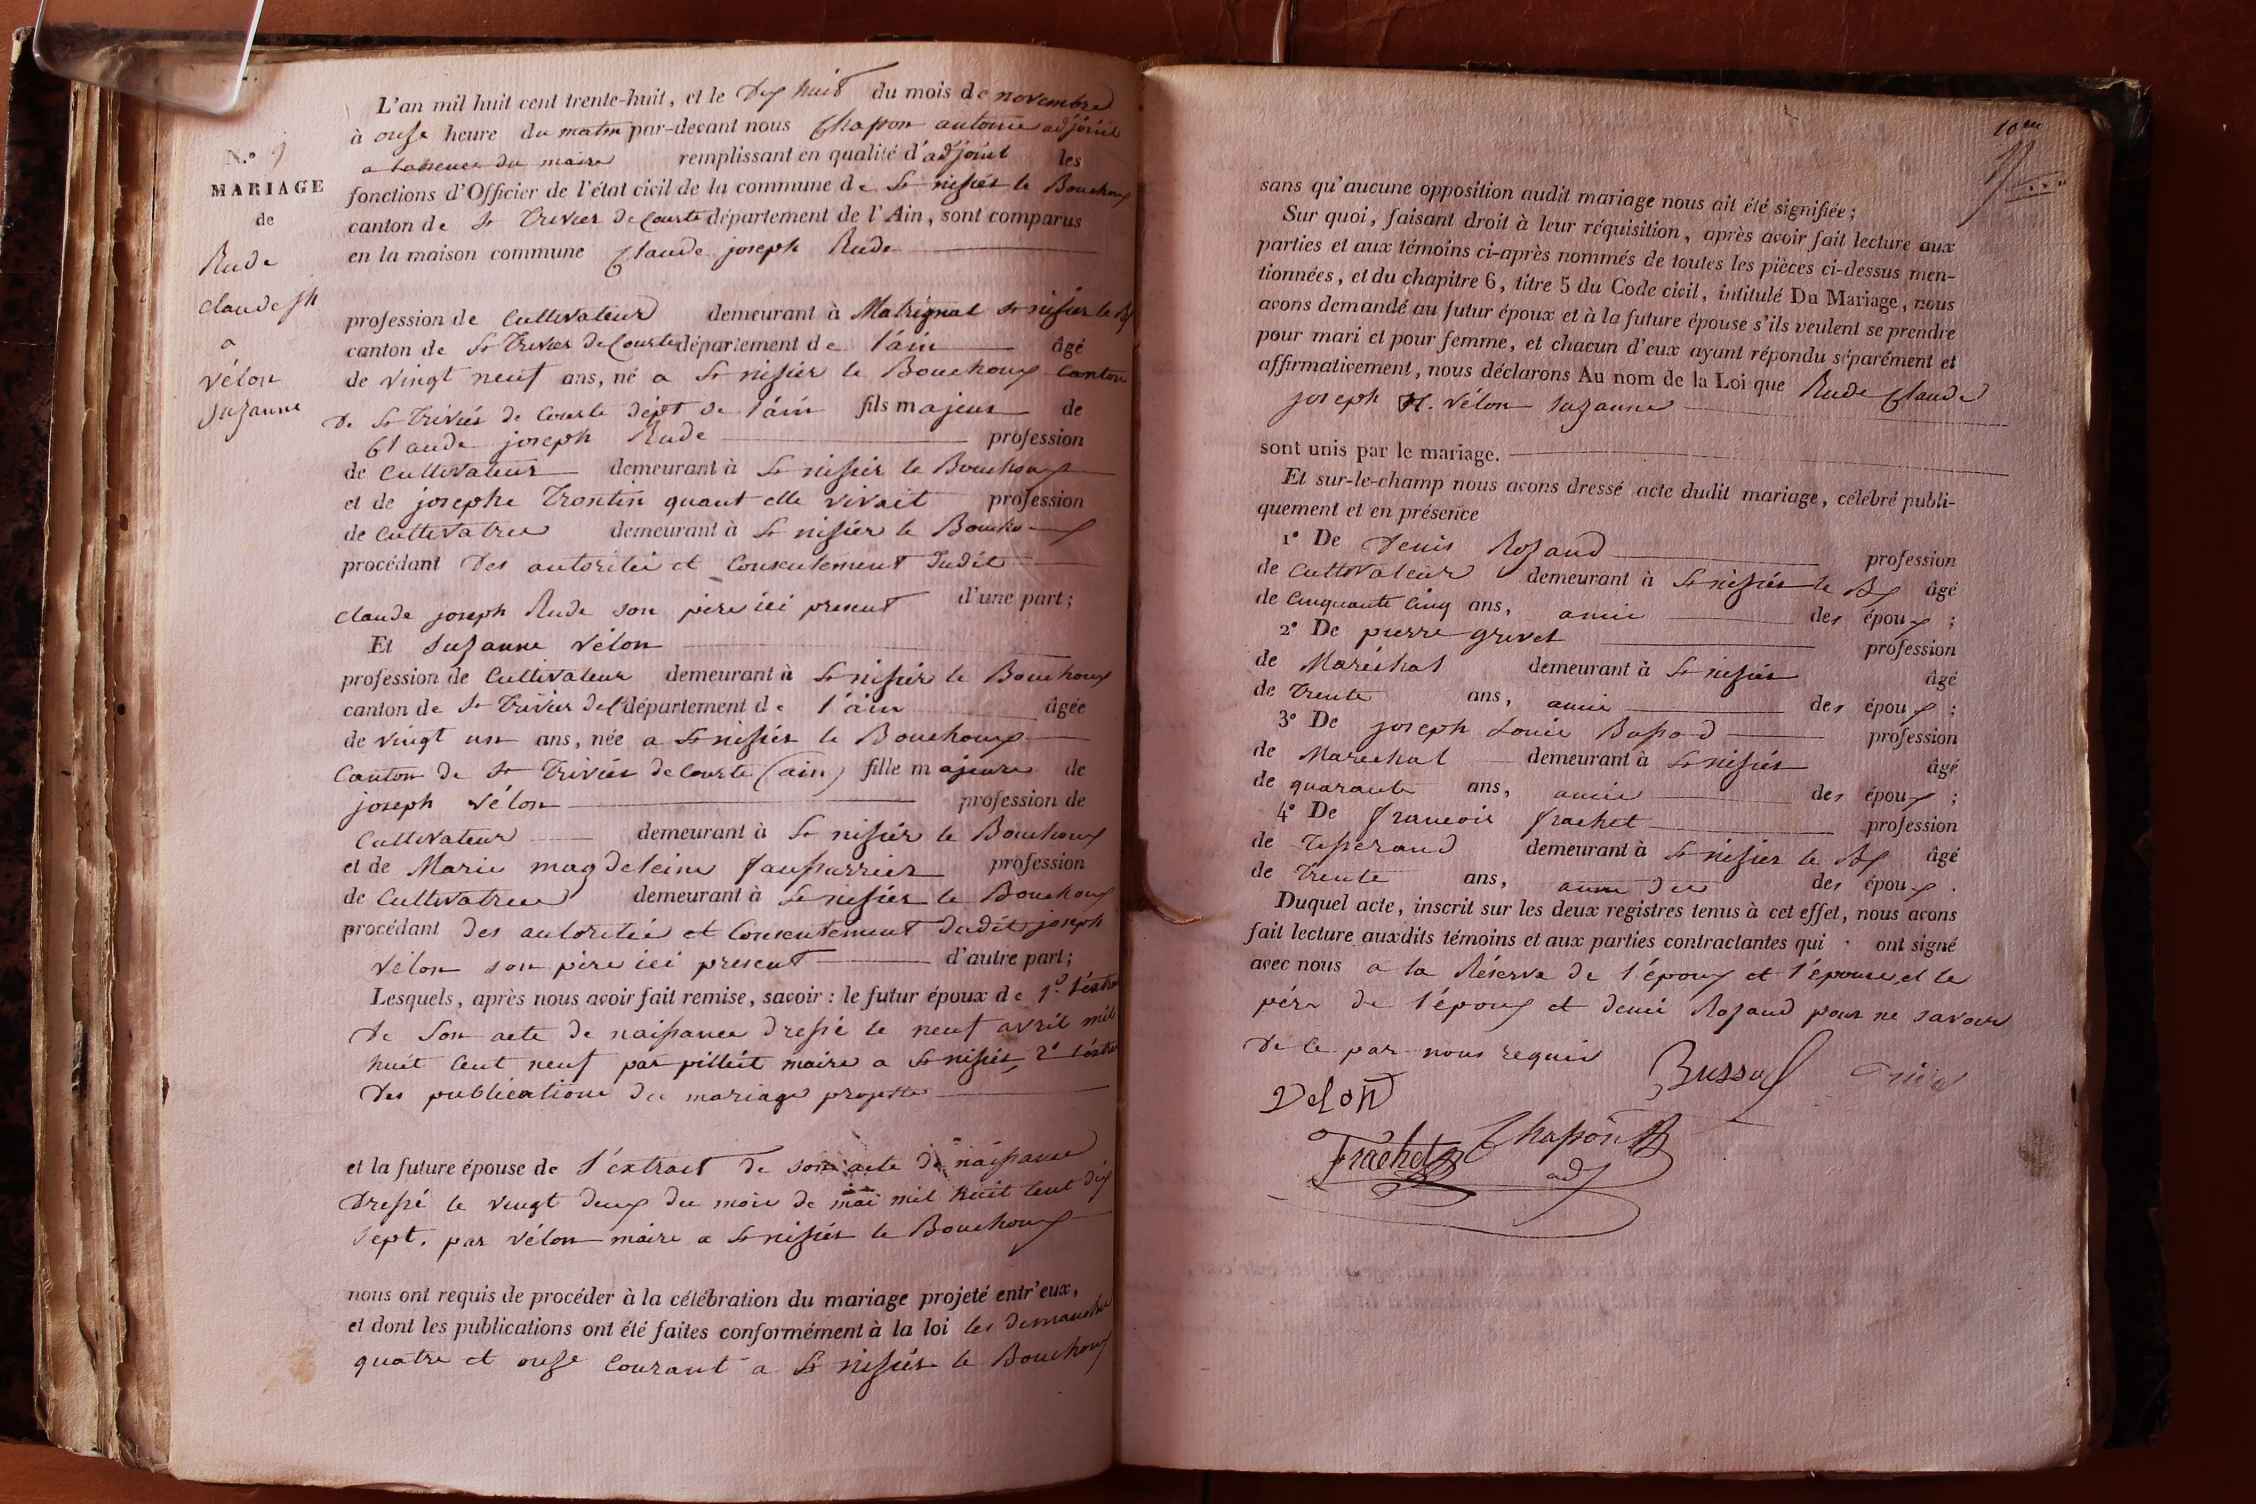 L'an mil huit cent trente-huit, et le dix huit du mois de novembre
à onse heure du matin par-devant nous Chapon antoine adjoint
a labsence du maire remplissant en qualité d'adjoint les
N.º 9
fonctions d'Officier de l'état civil de la commune de St nisier le Bouchoux
MARIAGE
canton de St Trivier de Courte département de l'Ain, sont comparus
de
en la maison commune Claude joseph Rude
Rude
claude jh
a
vélon
suzanne
profession de Cultivateur demeurant à Matrignat St nisier le Bx
canton de St Trivier de Courte département de l'ain âgé
de vingt neuf ans, né a St nisier le Bouchoux Canton
de St Trivier de Courte dépt de l'ain fils majeur de
Claude joseph Rude profession
de Cultivateur demeurant à St nisier le Bouchoux
et de josephe Trontin quant elle vivait profession
de Cultivatrice demeurant à St nisier le Bouchoux
procédant des autorité et Consentement dudit
claude joseph Rude son père ici present d'une part;
Et suzanne vélon
profession de Cultivateur demeurant à St nisier le Bouchoux
canton de St Trivier de C département de l'ain âgée
de vingt un ans, née a St nisier le Bouchoux
Canton de St Trivier de Courte (ain) fille majeure de
joseph vélon profession de
Cultivateur demeurant à St nisier le Bouchoux
et de Marie magdeleine profession
de Cultivatrice demeurant à St nisier le Bouchoux
procédant des autorité et Consentement dudit joseph
vélon son père ici present d'autre part;
Lesquels, après nous avoir fait remise, savoir: le futur époux de 1º l'extrait
de son acte de naissance dressé le neuf avril mil
huit cent neuf par pilleit maire a St nisier, 2º l'extrait
des publications du mariage projetté
et la future épouse de l'extrait de son acte de naissance
dressé le vingt deux du mois de mai mil huit cent dix
sept, par vélon maire a St nisier le Bouchoux
nous ont requis de procéder à la célébration du mariage projeté entr'eux,
et dont les publications ont été faites conformément à la loi les dimanche
quatre et onse Courant a St nisier le Bouchoux
10me
sans qu'aucune opposition audit mariage nous ait été signifiée;
Sur quoi, faisant droit à leur réquisition, après avoir fait lecture aux
parties et aux témoins ci-après nommés de toutes les pièces ci-dessus men-
tionnées, et du chapitre 6, titre 5 du Code civil, intitulé Du Mariage, nous
avons demandé au futur époux et à la future épouse s'ils veulent se prendre
pour mari et pour femme, et chacun d'eux ayant répondu séparément et
affirmativement, nous déclarons Au nom de la Loi que Rude Claude
joseph et vélon suzanne
sont unis par le mariage.
Et sur-le-champ nous avons dressé acte dudit mariage, célébré publi-
quement et en présence
1º De Denis Rozand profession
de Cultivateur demeurant à St nisier le Bx âgé
de Cinquante Cinq ans, amie des époux;
2º De pierre grivet profession
de Maréchal demeurant à St nisier âgé
de Trente ans, amie des époux;
3º De joseph Louis profession
de Marechal demeurant à St nisier âgé
de quarante ans, amie des époux;
4º De francois frachet profession
de Tisserand demeurant à St nisier le Bx âgé
de Trente ans, des époux.
Duquel acte, inscrit sur les deux registres tenus à cet effet, nous avons
fait lecture auxdits témoins et aux parties contractantes qui ont signé
avec nous a la Réserve de l'époux et l'épouse, et le
père de l'époux et denis Rozand pour ne savoir
de ce par nous requis
velon
Frachet
Chapon
adj